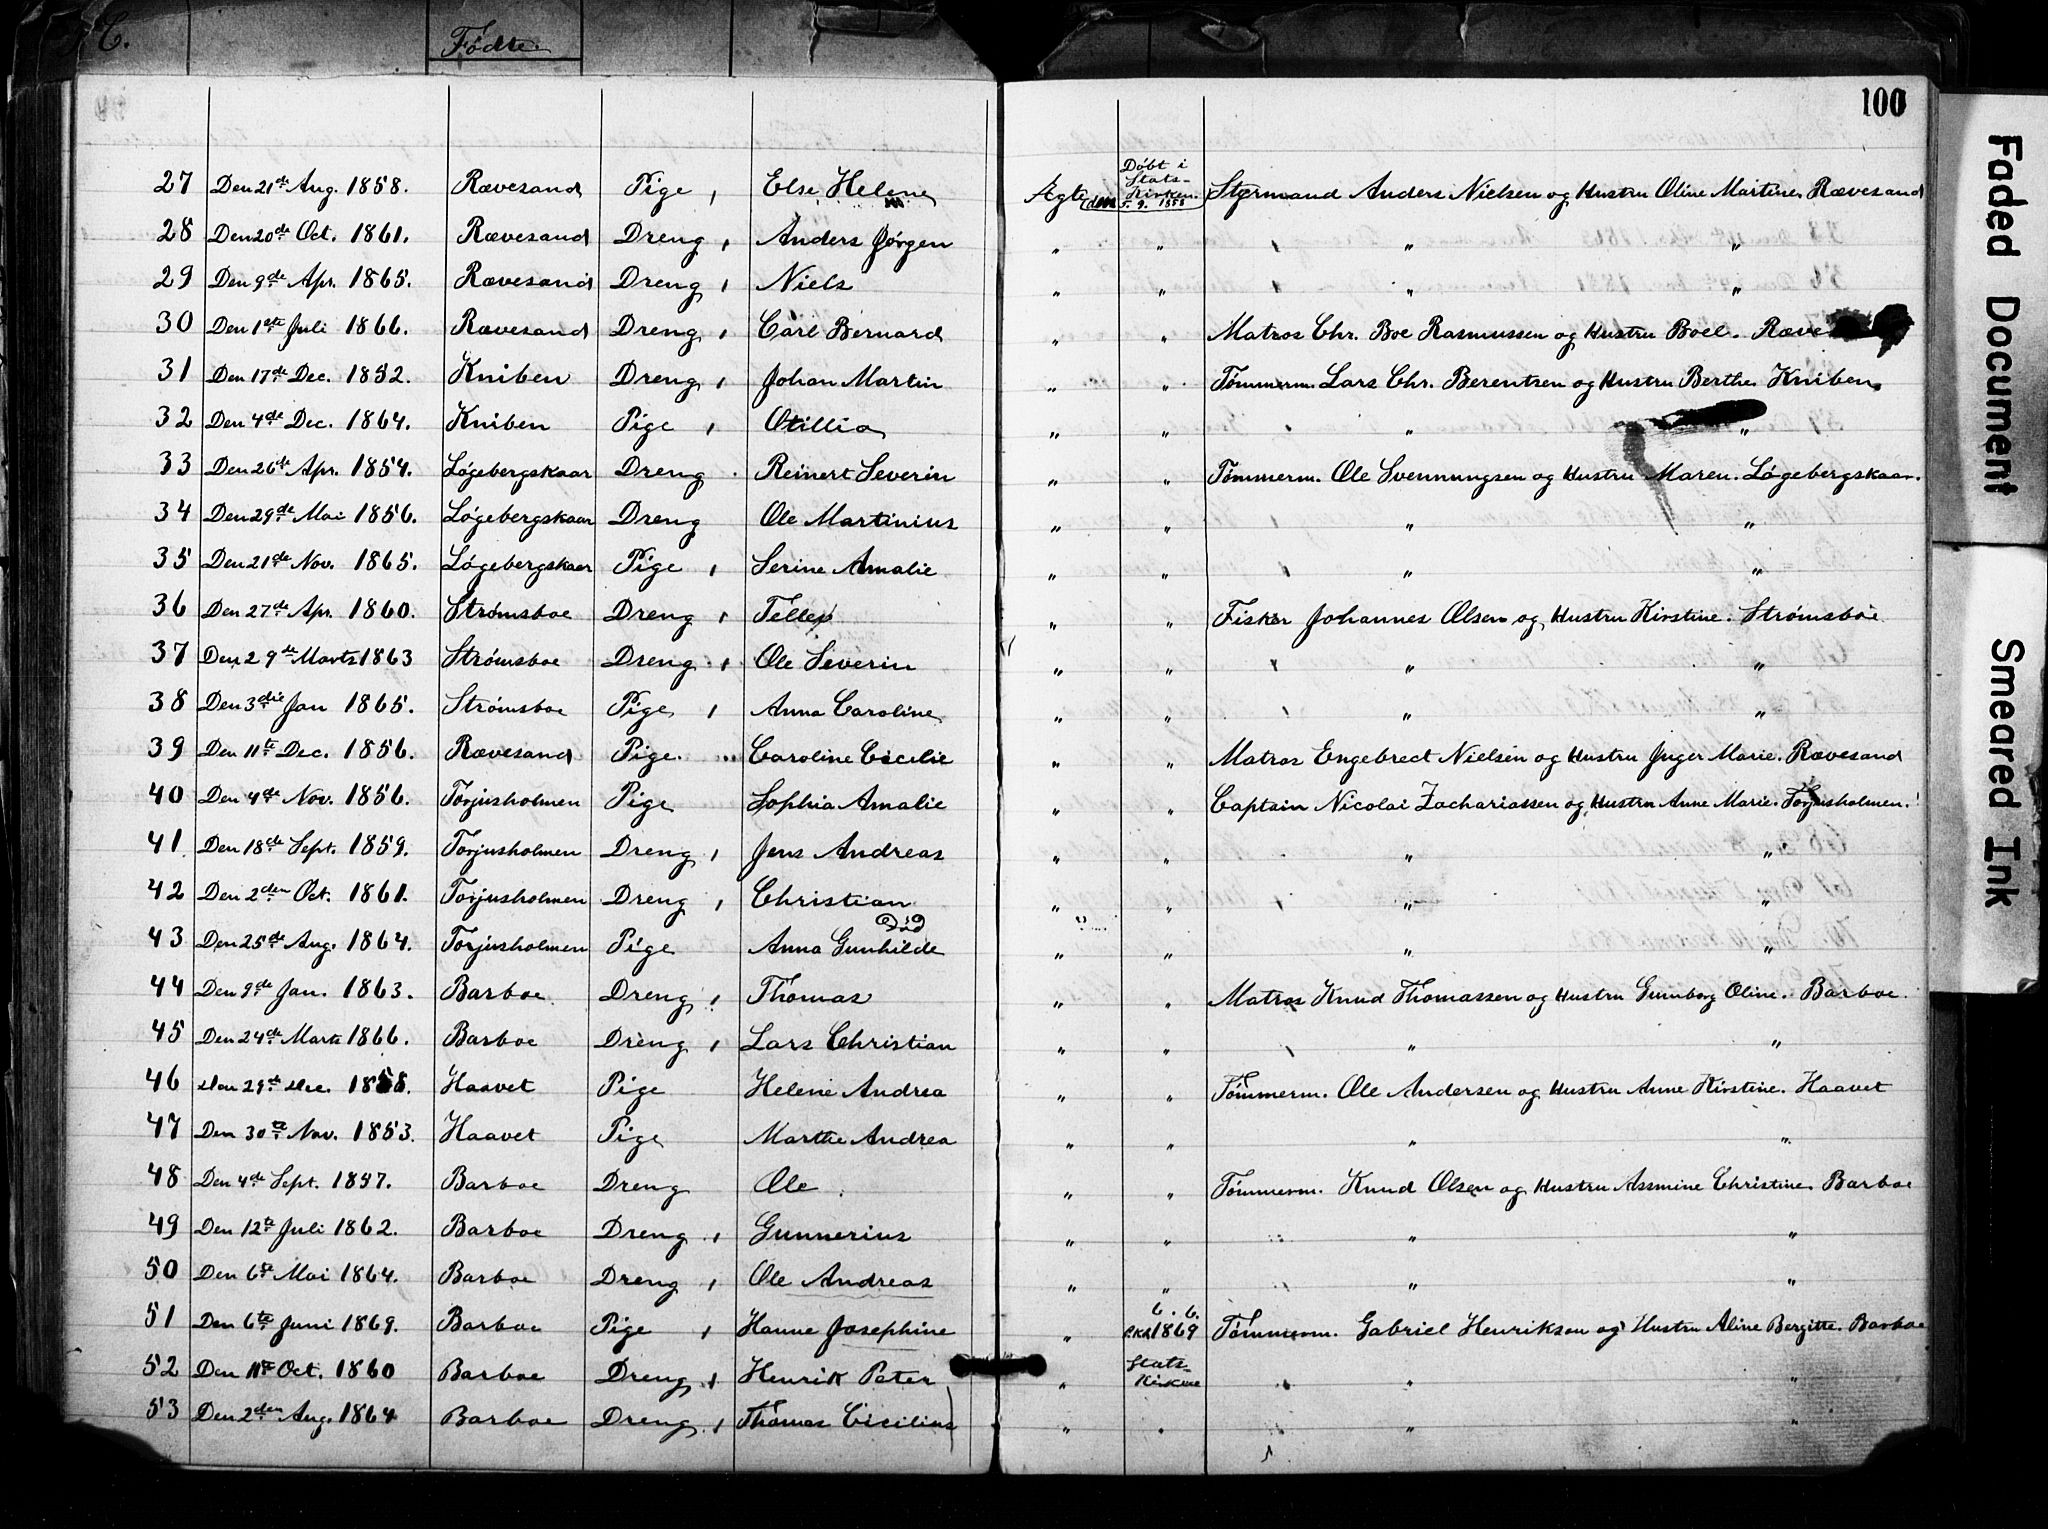 C.
Födte.
100
27 Den 21de Aug. 1858. Rævesand Pige, Else Helene Ægte Døbt i Stats-Kirken. 5. 9. 1858 Styrmand Anders Nielsen og Hustru Oline Martine. Rævesand
28 Den 20de Oct. 1861. Rævesand Dreng, Anders Jørgen " " " "
29 Den 9de Apr. 1865. Rævesand Dreng, Niels " " " "
30 Den 1ste Juli 1866. Rævesand Dreng, Carl Bernard " " Matros Chr. Boe Rasmussen og Hustru Boel. Ræve
31 Den 17de Dec. 1852. Kniben Dreng, Johan Martin " " Tømmerm. Lars Chr. Berentsen og Hustru Berthe. Kniben.
32 Den 4de Dec. 1864. Kniben Pige, Otillia " " " "
33 Den 26de Apr. 1854. Løgebergskaar Dreng. Reinert Severin " " Tømmerm. Ole Svennungsen og Hustru Maren. Løgebergskaar.
34 Den 29de Mai 1856. Løgebergskaar Dreng Ole Martinius " " " "
35 Den 21de Nov. 1865. Løgebergskaar Pige, Serine Amalie " " " "
36 Den 27de Apr. 1860. Strømsboe Dreng, Tellef " " Fisker Johannes Olsen og Hustru Kirstine. Strømsboe
37 Den 29de Marts 1863 Strømsboe Dreng, Ole Severin " " " "
38 Den 3die Jan 1865. Strømsboe Pige, Anna Caroline " " " "
39 Den 11te Dec. 1856. Rævesand Pige. Caroline Cecilie " " Matros Engebrect Nielsen og Hustru Inger Marie. Rævesand
40 Den 4de Nov. 1856. Torjusholmen Pige Sophia Amalie " " Captain Nicolai Zachariassen og Hustru Anne Marie. Torjusholmen.
41 Den 18de Sept. 1859. Torjusholmen Dreng, Jens Andreas " " " "
42 Den 2den Oct. 1861. Torjusholmen Dreng, Christian " " " "
43 Den 25de Aug. 1864. Torjusholmen Pige Anna Gunhilde " " " "
44 Den 9de Jan. 1863. Barboe Dreng, Thomas " " Matros Knud Thomassen og Hustru Gunborg Oline. Barboe.
45 Den 24de Marts 1866. Barboe Dreng, Lars Christian " " " "
46 Den 29de Dec. 1858. Haavet Pige Helene Andrea " " Tømmerm. Ole Andersen og Hustru Anne Kirstine. Haavet
47 Den 30te Nov. 1853. Haavet Pige Marthe Andrea " " " "
48 Den 4de Sept. 1857. Barboe Dreng Ole " " Tømmerm. Knud Olsen og Hustru Assmine Christine. Barboe
49 Den 12te Juli 1862. Barboe Dreng, Gunnerius " " " "
50 Den 6te Mai 1864. Barboe Dreng, Ole Andreas " " " "
51 Den 6te Juni 1869. Barboe Pige, Hanne Josephine " 6. 6. 1869 Tømmerm. Gabriel Henriksen og Hustru Aline Bergitte. Barboe
52 Den 11te Oct. 1860 Barboe Dreng, Henrik Peter " Stats-Kirken " "
53 Den 2den Aug. 1864 Barboe Dreng, Thomas Cicilius " " " "
Faded Document
Smeared Ink